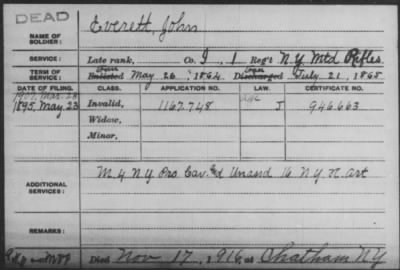 DEAD
NAME OF SOLDIER: Everett, John
SERVICE: Late rank, Co. I, 1 Reg't N.Y. Mtd Rifles
TERM OF SERVICE: Enlisted May 26, 1864 Discharged July 21, 1865
DATE OF FILING. CLASS. APPLICATION NO. LAW. CERTIFICATE NO.
1895, May 23 Invalid, 1167.748 J 946663
Widow,
Minor,
ADDITIONAL SERVICES: M 4 N Y Pro Cav. and Unasd 16 N Y H. Art
REMARKS:
Died Nov 17, 1916, at Chatham N Y